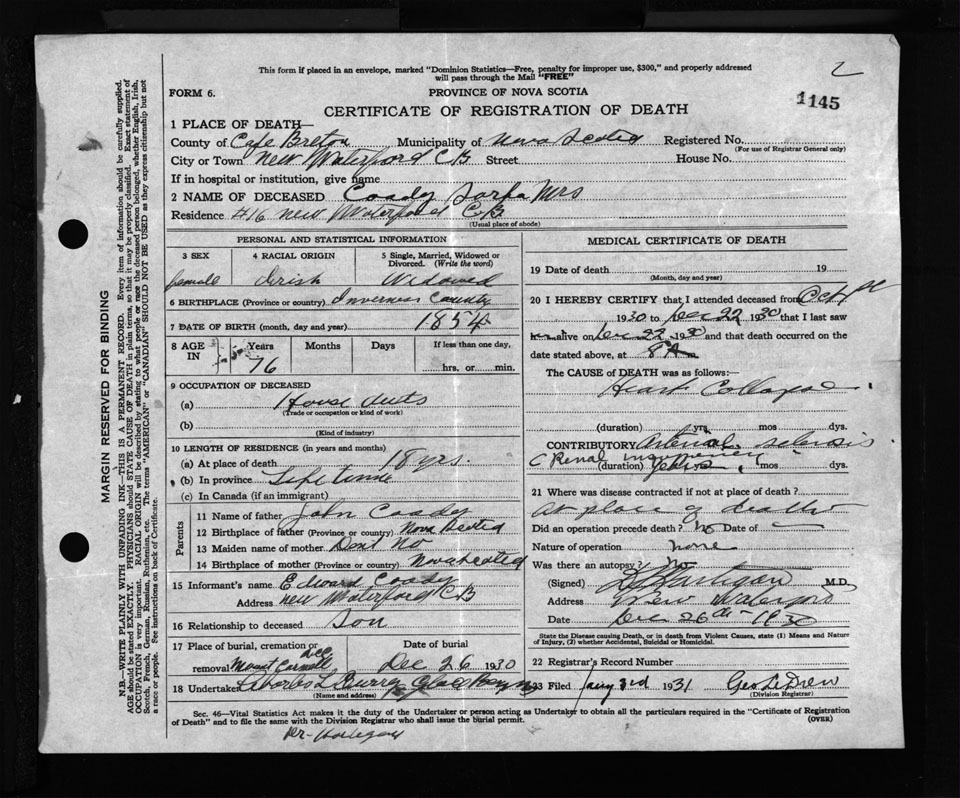 This form if placed in an envelope, marked "Dominion Statistics—Free, penalty for improper use, $300," and properly addressed
will pass through the Mail "FREE"
2
FORM 6.
PROVINCE OF NOVA SCOTIA
1145
CERTIFICATE OF REGISTRATION OF DEATH
1 PLACE OF DEATH—
County of Cape Breton Municipality of Nova Scotia Registered No.
(For use of Registrar General only)
City or Town New Waterford CB Street House No.
If in hospital or institution, give name
2 NAME OF DECEASED Coady Mrs
Residence 416 New Waterford CB
(Usual place of abode)
PERSONAL AND STATISTICAL INFORMATION
3 SEX 4 RACIAL ORIGIN 5 Single, Married, Widowed or
Divorced. (Write the word)
female Irish Widowed
6 BIRTHPLACE (Province or country) Inverness County
7 DATE OF BIRTH (month, day and year) 1854
8 AGE IN Years Months Days If less than one day,
76 hrs. or min.
9 OCCUPATION OF DECEASED
(a) House duts
(Trade or occupation or kind of work)
(b)
(Kind of industry)
10 LENGTH OF RESIDENCE (in years and months)
(a) At place of death 18 yrs.
(b) In province Life time
(c) In Canada (if an immigrant)
Parents
11 Name of father John Coady
12 Birthplace of father (Province or country) Nova Scotia
13 Maiden name of mother Dont No
14 Birthplace of mother (Province or country) Nova Scotia
15 Informant's name Edward Coady
Address New Waterford CB
16 Relationship to deceased Son
17 Place of burial, cremation or Date of burial
removal Mount Carmell Dec 26 1930
18 Undertaker Charles L Curry Glace Bay
(Name and address)
MEDICAL CERTIFICATE OF DEATH
19 Date of death 19
(Month, day and year)
20 I HEREBY CERTIFY that I attended deceased from Oct
1930 to Dec 22 1930 that I last saw
alive on Dec 22 1930 and that death occurred on the
date stated above, at 8 A m
The CAUSE of DEATH was as follows:
Heart Collapse
(duration) yrs. mos dys.
CONTRIBUTORY Arterial sclerosis
C Renal insufficiency
(duration) years mos dys.
21 Where was disease contracted if not at place of death?
At place of death
Did an operation precede death? No Date of
Nature of operation none
Was there an autopsy? No
(Signed) Hartigan M.D.
Address New Waterford
Date Dec 26th 1930
State the Disease causing Death, or in death from Violent Causes, state (1) Means and Nature
of Injury, (2) whether Accidental, Suicidal or Homicidal.
22 Registrar's Record Number
23 Filed Jany 3rd 1931 Geo LeDrew
(Division Registrar)
Sec. 46—Vital Statistics Act makes it the duty of the Undertaker or person acting as Undertaker to obtain all the particulars required in the "Certificate of Registration
of Death" and to file the same with the Division Registrar who shall issue the burial permit.
(OVER)
Der-Hartigan
MARGIN RESERVED FOR BINDING
N.B.—WRITE PLAINLY WITH UNFADING INK—THIS IS A PERMANENT RECORD. Every item of information should be carefully supplied.
AGE should be stated EXACTLY. PHYSICIANS should STATE CAUSE OF DEATH in plain terms, so that it may be properly classified. Exact statement of
OCCUPATION is very important. RACIAL ORIGIN will be described by stating to what people or race the deceased person belonged, whether English, Irish,
Scotch, French, German, Russian, Ruthenian, etc. The terms "AMERICAN" or "CANADIAN" SHOULD NOT BE USED as they express citizenship but not
a race or people. See instructions on back of Certificate.